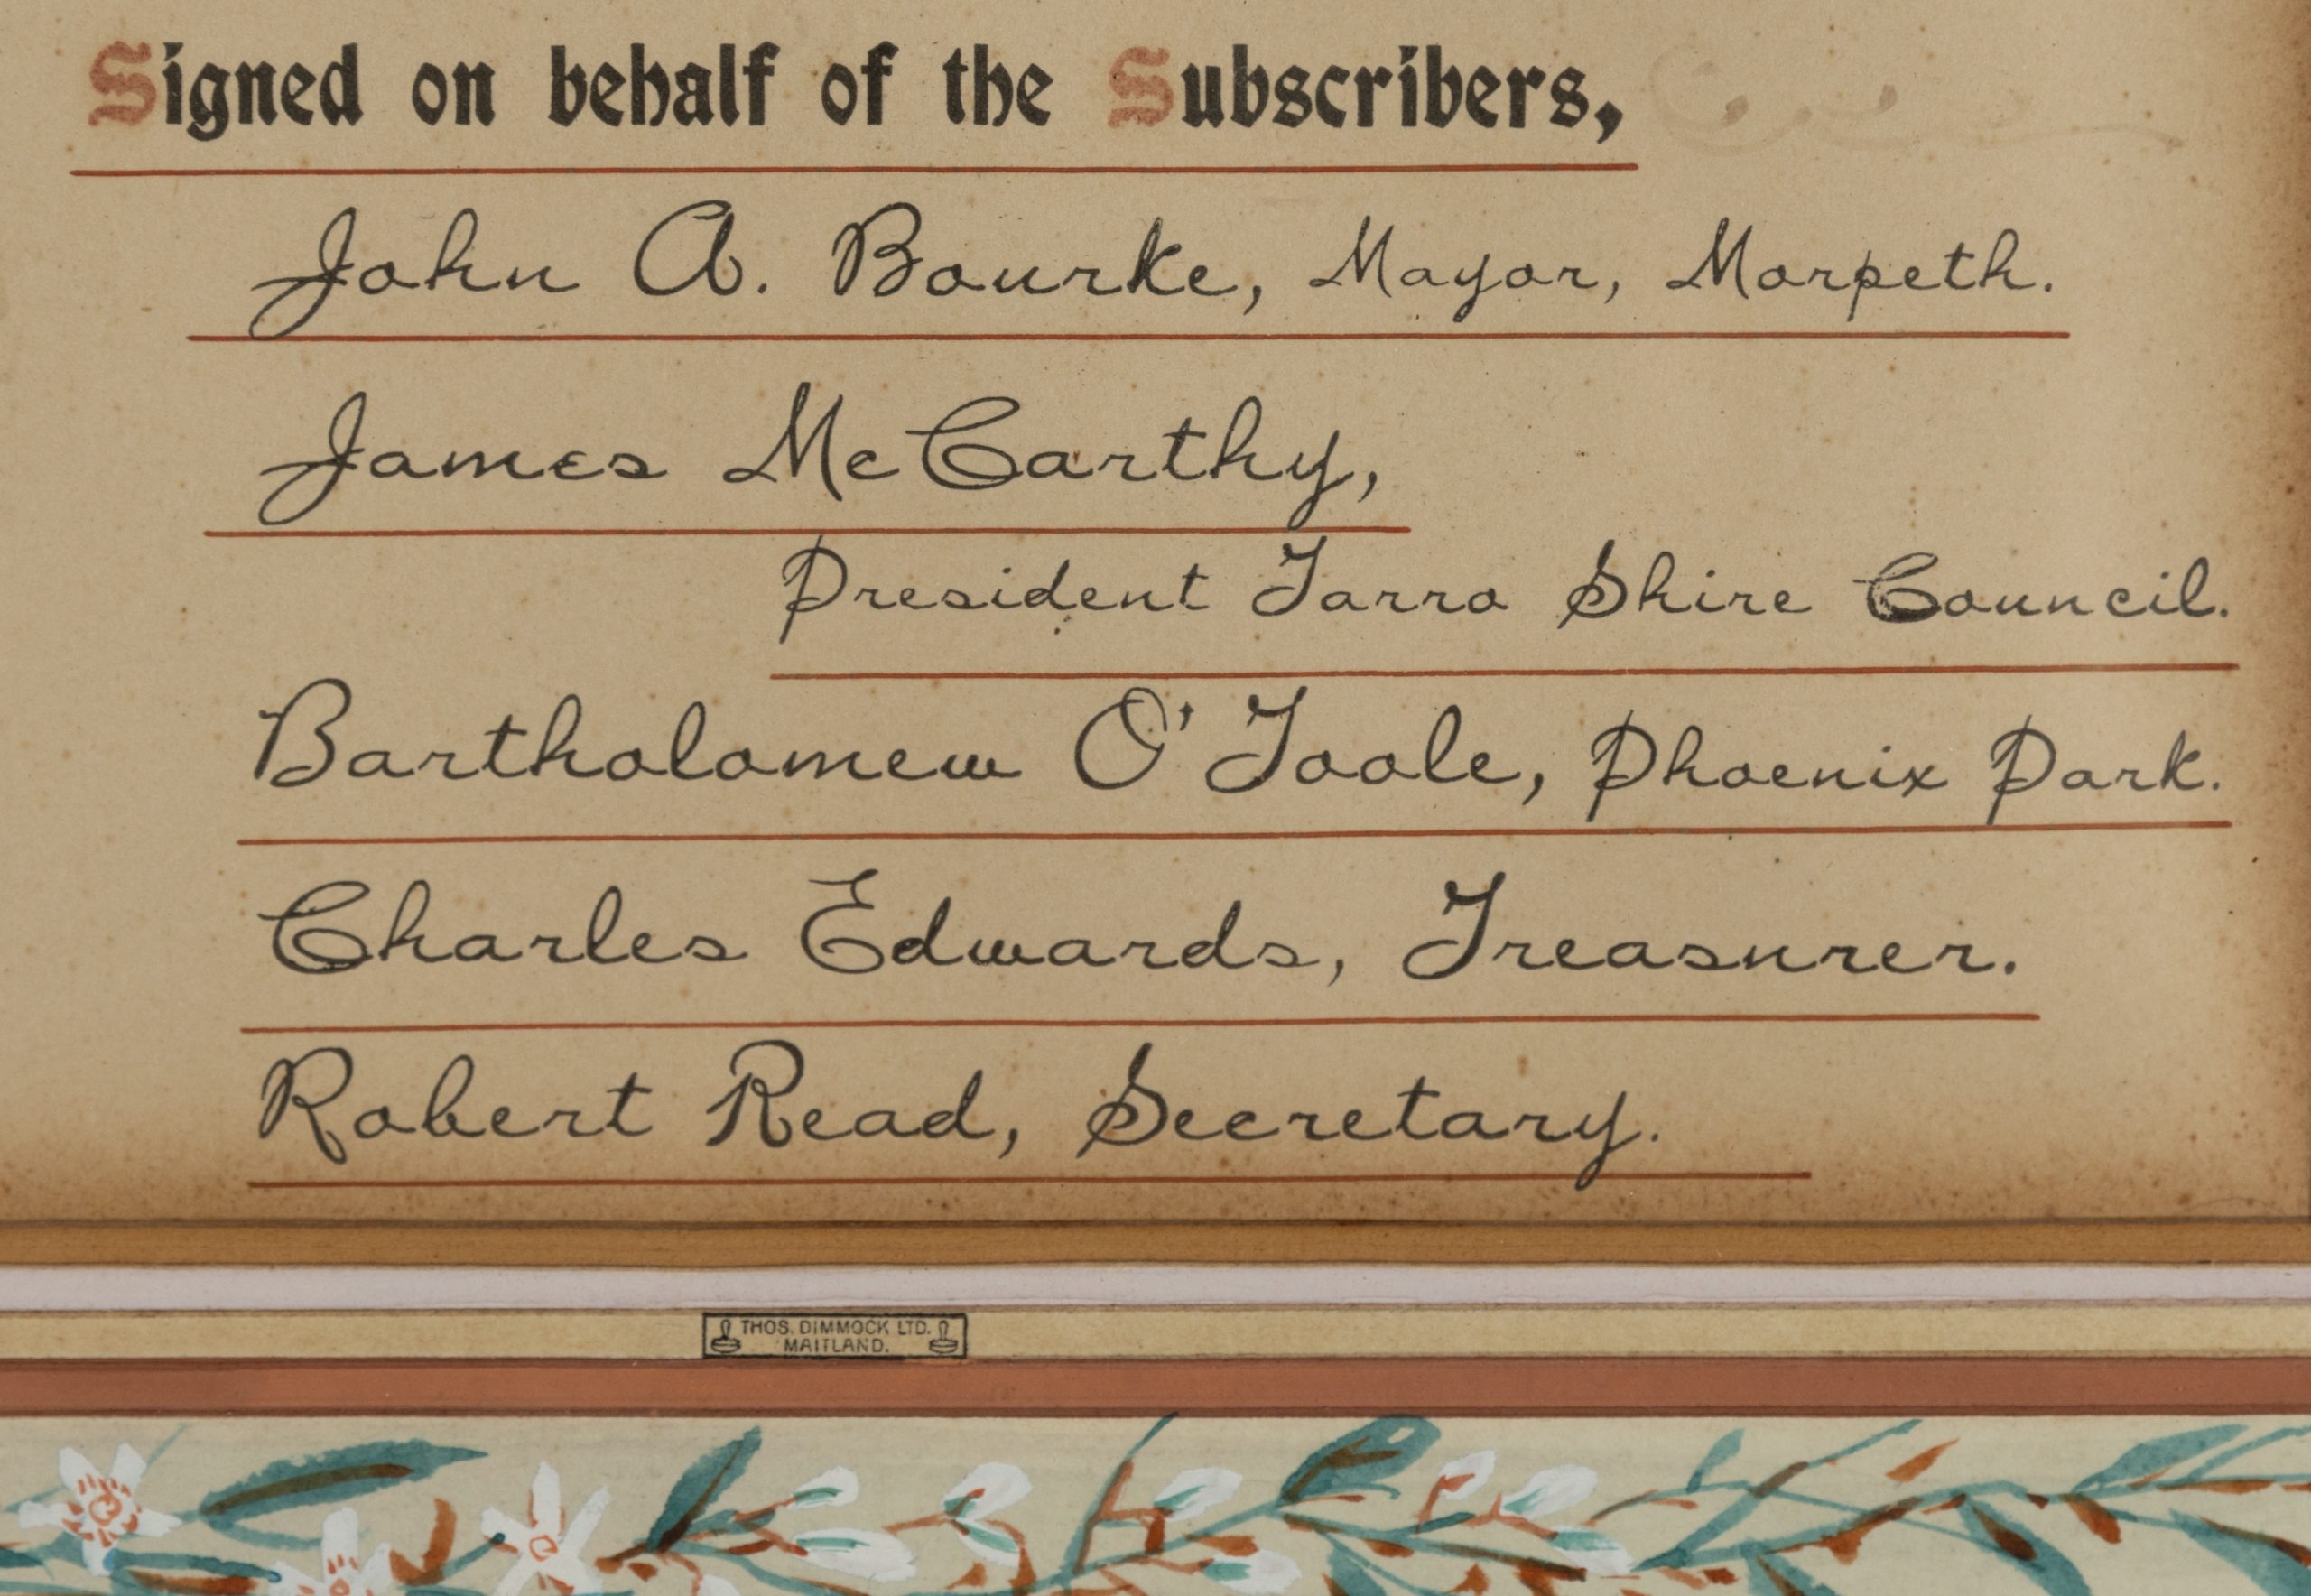 Signed on behalf of the Subscribers,
John A. Bourke, Mayor, Morpeth.
James McCarthy,
President Tarro Shire Council.
Bartholomew O'Toole, Phoenix Park.
Charles Edwards, Treasurer.
Robert Read, Secretary.
THOS. DIMMOCK LTD.
MAITLAND.